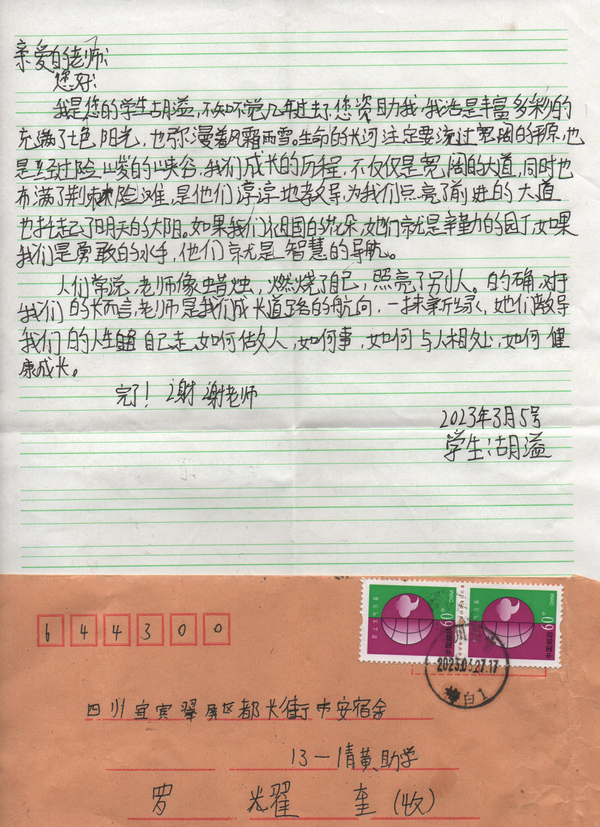 亲爱的老师:
您好:
我是您的学生胡溢,不知不觉几年过去了,您资助我,我活是丰富多彩的
充满了七色阳光,也弥漫着风霜雨雪。生命的长河注定要流过宽阔的平原,也
是经过险峻的峡谷,我们成长的历程,不仅仅是宽阔的大道,同时也
布满了荆棘险难,是他们谆谆地教导,为我们点亮了前进的大道
也托起了明天的太阳。如果我们祖国的花朵,她们就是辛勤的园丁,如果
我们是勇敢的水手,他们就是智慧的导航。
人们常说,老师像蜡烛,燃烧了自己,照亮了别人。的确,对于
我们的长而言,老师是我们成长道路的航向,一抹新绿,她们教导
我们的人生路自己走,如何做人,如何事,如何与人相处,如何健
康成长。
完了!谢谢老师
2023年3月5号
学生:胡溢
644300
60
中国邮政
CHINA
2023.03.27.17
四川宜宾翠屏区都长街中安宿舍
13-1清黄助学
罗光耀奎(收)